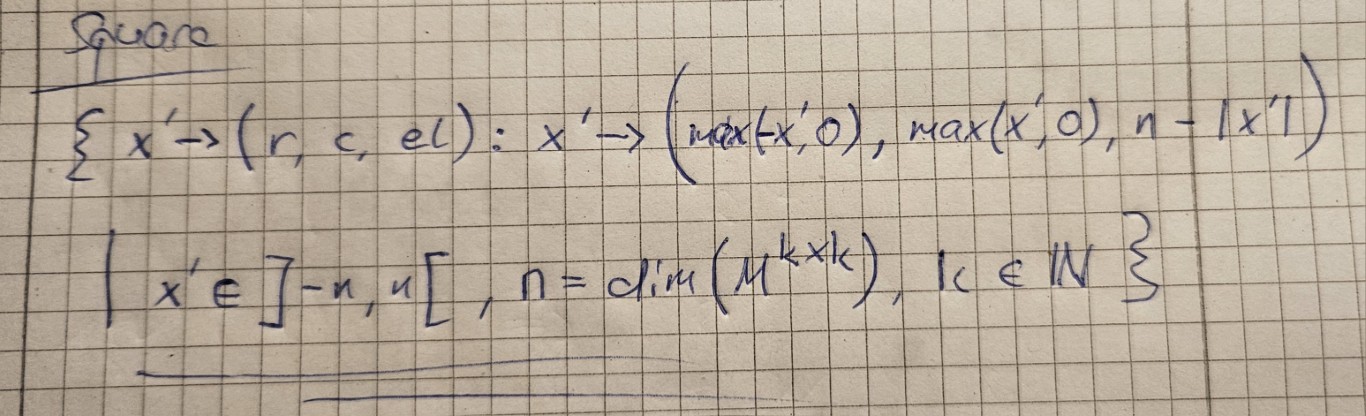 Square
{ x' → (r, c, el) : x' → (max(-x', 0), max(x', 0), n - |x'|)
| x' ∈ ]-n, n[ , n = dim(M^{k×k}), k ∈ ℕ }